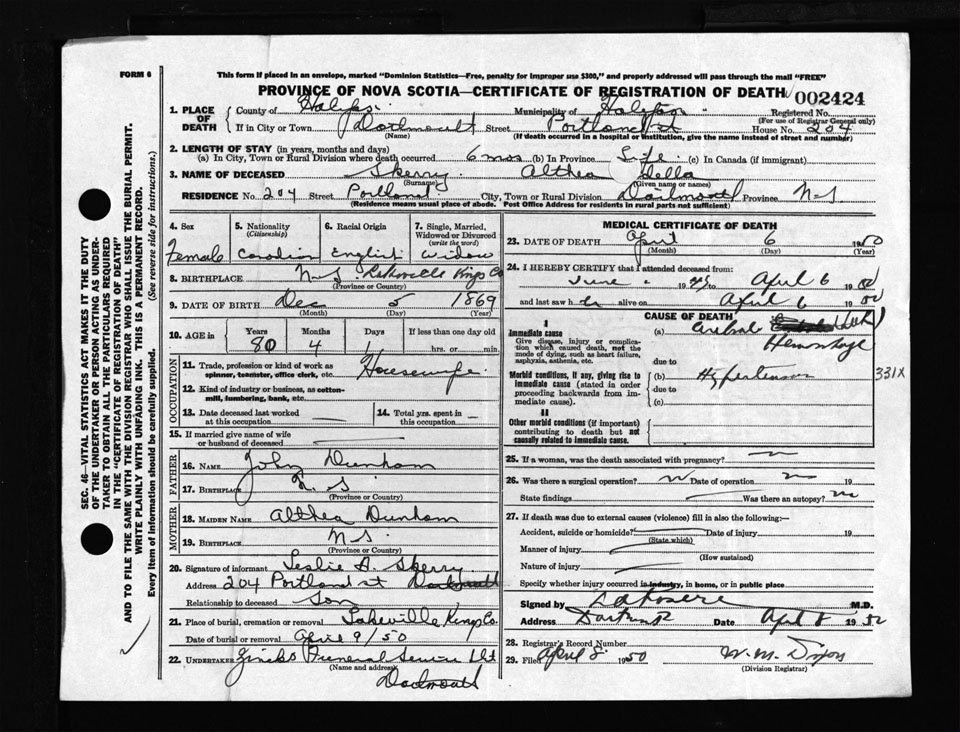 FORM 6
This form if placed in an envelope, marked "Dominion Statistics—Free, penalty for improper use $300," and properly addressed will pass through the mail "FREE"
PROVINCE OF NOVA SCOTIA—CERTIFICATE OF REGISTRATION OF DEATH
002424
1. PLACE OF DEATH
County of Halifax
Municipality of Halifax "
Registered No.
(For use of Registrar General only)
If in City or Town Dartmouth Street Portland St House No. 204
(Name) (If death occurred in a hospital or institution, give the name instead of street and number)
2. LENGTH OF STAY (in years, months and days)
(a) In City, Town or Rural Division where death occurred 6 mos (b) In Province Life (c) In Canada (if immigrant)
3. NAME OF DECEASED Skerry Althea Della
(Surname) (Given name or names)
RESIDENCE No. 204 Street Portland City, Town or Rural Division Dartmouth Province N-S
(Residence means usual place of abode. Post Office Address for residents in rural parts not sufficient)
4. Sex
Female
5. Nationality
(Citizenship)
Canadian
6. Racial Origin
English
7. Single, Married, Widowed or Divorced
(write the word)
Widow
8. BIRTHPLACE N-S Kings Co
(Province or Country)
9. DATE OF BIRTH Dec 5 1869
(Month) (Day) (Year)
10. AGE in
Years Months Days If less than one day old
80 4 1 hrs. or min.
OCCUPATION
11. Trade, profession or kind of work as spinner, teamster, office clerk, etc. Housewife
12. Kind of industry or business, as cotton-mill, lumbering, bank, etc.
13. Date deceased last worked at this occupation
14. Total yrs. spent in this occupation
15. If married give name of wife or husband of deceased
FATHER
16. NAME John Dunham
17. BIRTHPLACE N.S
(Province or Country)
MOTHER
18. MAIDEN NAME Althea Dunham
19. BIRTHPLACE N S
(Province or Country)
20. Signature of informant Leslie A. Skerry
Address 204 Portland st Dartmouth
Relationship to deceased Son
21. Place of burial, cremation or removal Lakeville Kings Co.
Date of burial or removal April 9/50
22. UNDERTAKER Zincks Funeral Service Ltd
(Name and address)
Dartmouth
MEDICAL CERTIFICATE OF DEATH
23. DATE OF DEATH April 6 1950
(Month) (Day) (Year)
24. I HEREBY CERTIFY that I attended deceased from:
June 19 to April 6 19
and last saw her alive on April 6 19
CAUSE OF DEATH
I
Immediate cause
Give disease, injury or complication which caused death, not the mode of dying, such as heart failure, asphyxia, asthenia, etc.
(a) Cerebral
Hemorrhage
due to
Morbid conditions, if any, giving rise to immediate cause (stated in order proceeding backwards from immediate cause).
(b) Hypertension
331X
due to
(c)
II
Other morbid conditions (if important) contributing to death but not causally related to immediate cause.
25. If a woman, was the death associated with pregnancy?
26. Was there a surgical operation? Date of operation 19
State findings Was there an autopsy? no
27. If death was due to external causes (violence) fill in also the following:—
Accident, suicide or homicide? Date of injury 19
(State which)
Manner of injury
(How sustained)
Nature of injury
Specify whether injury occurred in industry, in home, or in public place
Signed by M.D.
Address Dartmouth Date April 8 19
28. Registrar's Record Number
29. Filed April 8. 1950 W. M. Dixon
(Division Registrar)
SEC. 46—VITAL STATISTICS ACT MAKES IT THE DUTY
OF THE UNDERTAKER OR PERSON ACTING AS UNDERTAKER TO OBTAIN ALL THE PARTICULARS REQUIRED
IN THE "CERTIFICATE OF REGISTRATION OF DEATH"
AND TO FILE THE SAME WITH THE DIVISION REGISTRAR WHO SHALL ISSUE THE BURIAL PERMIT.
WRITE PLAINLY WITH UNFADING INK. THIS IS A PERMANENT RECORD.
Every item of Information should be carefully supplied. (See reverse side for instructions.)